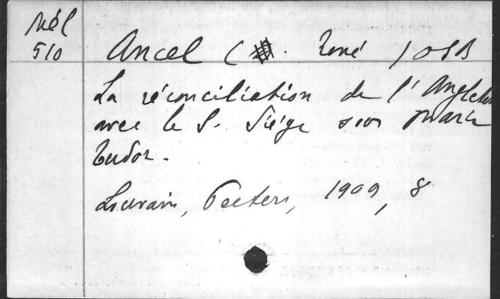 Mél
510
Ancel ( . René ) OSB
La réconciliation de l'Angleterre
avec le S. Siége sous Marie
Tudor.
Louvain, Peeters, 1909, 8